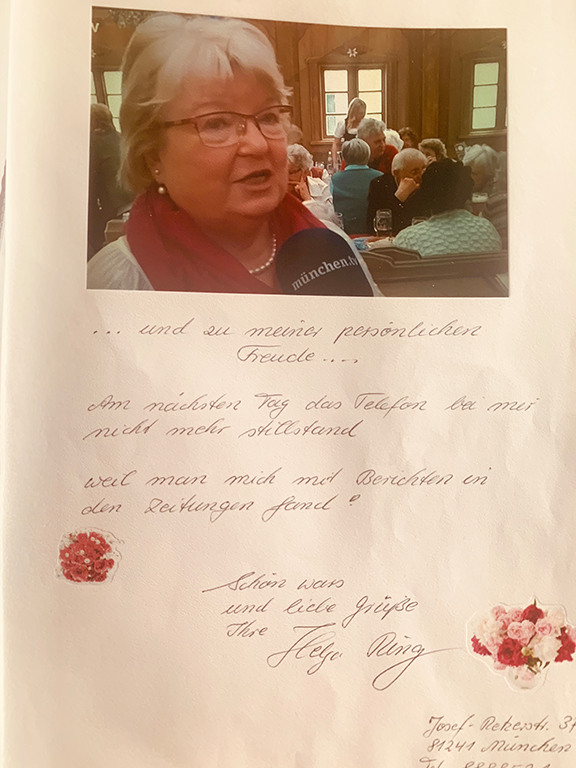 münchen.tv
... und zu meiner persönlichen
Freude....
Am nächsten Tag das Telefon bei mir
nicht mehr stillstand
weil man mich mit Berichten in
den Zeitungen fand!
Schön wars
und liebe Grüße
Ihre
Helga Ring
81241 München